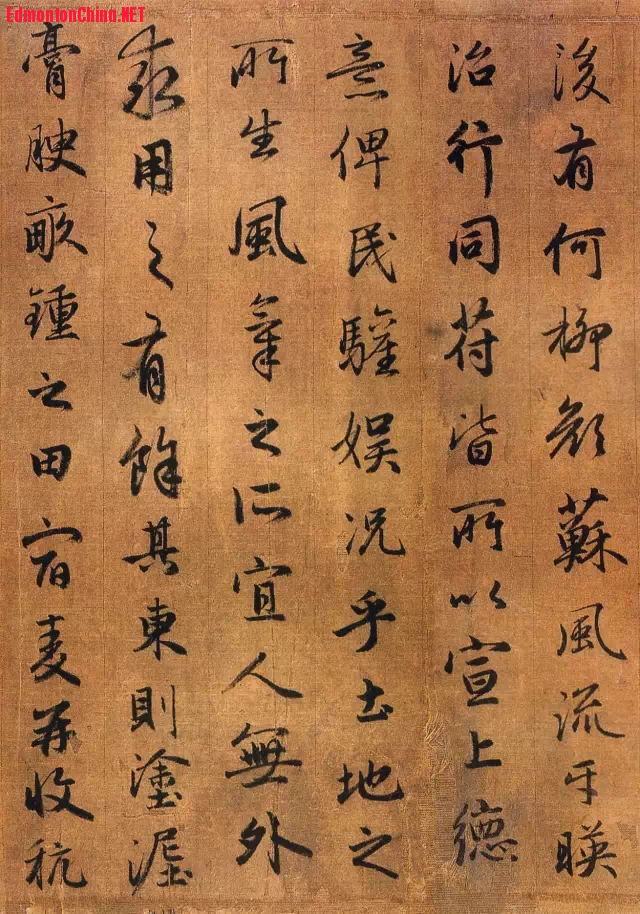 EdmontonChina.NET
後有何柳顏蘇風流牙暎
治行同苻皆所以宣上德
意俾民驩娱况乎土地之
所生風氣之所宜人無外
求用之有餘其東則塗泥
膏腴畝鍾之田宿麦再收秔